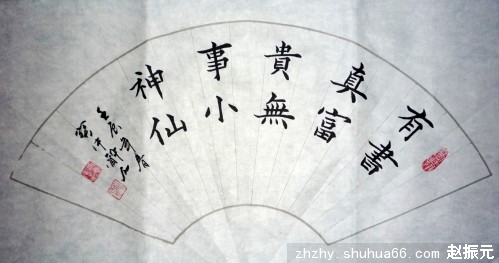 有書
真富
貴無
事小
神仙
壬辰
zhzhy.shuhua66.com 赵振元